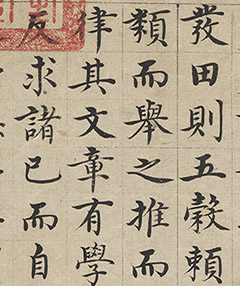 發田則五穀頼
類而舉之推而
律其文章有學
反求諸已而自